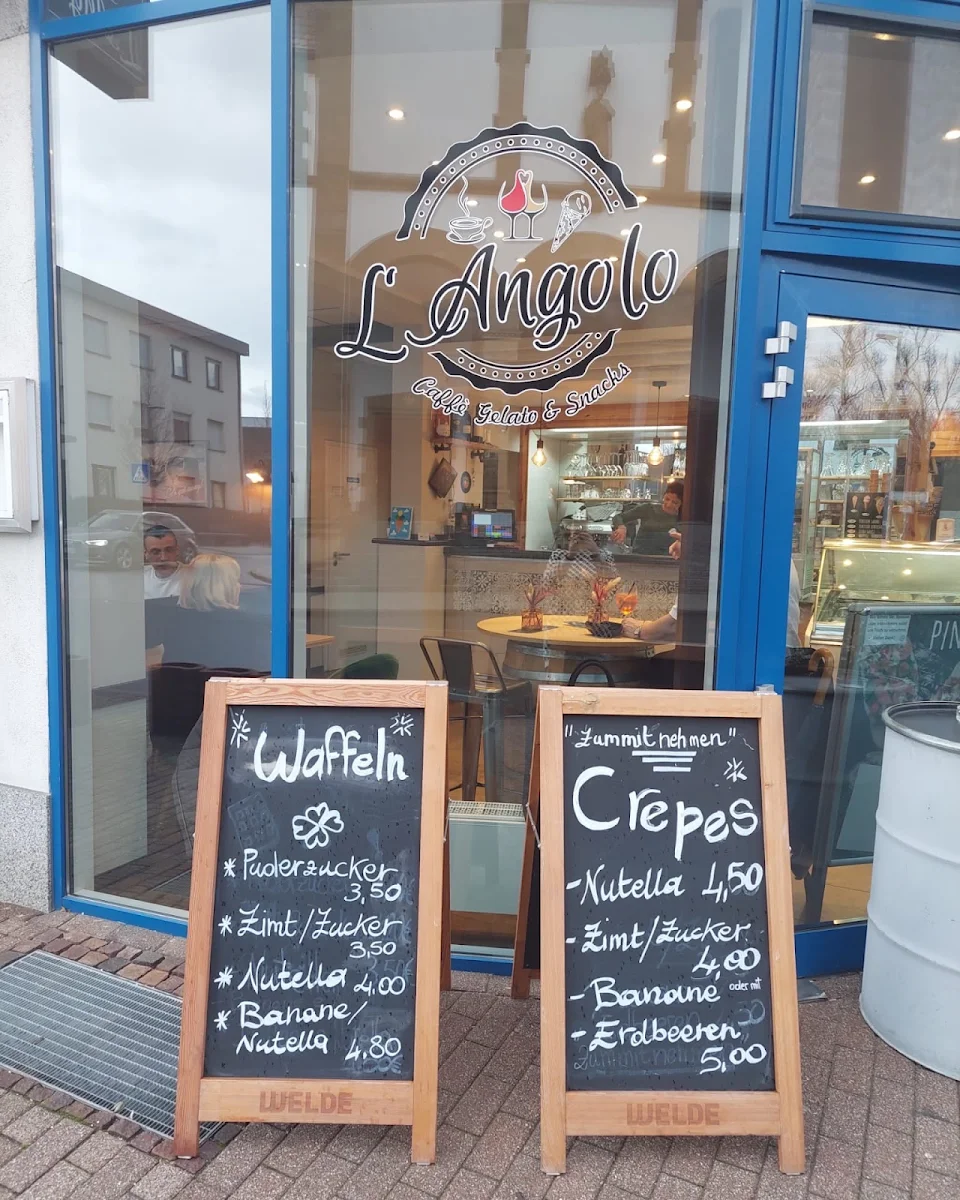 L'Angolo
Caffè Gelato & Snacks
Waffeln
* Puderzucker
3,50
* Zimt/Zucker
3,50
* Nutella 4.00
* Banane/
Nutella 4.80
WELDE
"Zummitnehmen"
Crepes
- Nutella 4,50
- Zimt/Zucker
4,00
- Banane oder mit
- Erdbeeren
5,00
WELDE
PIN